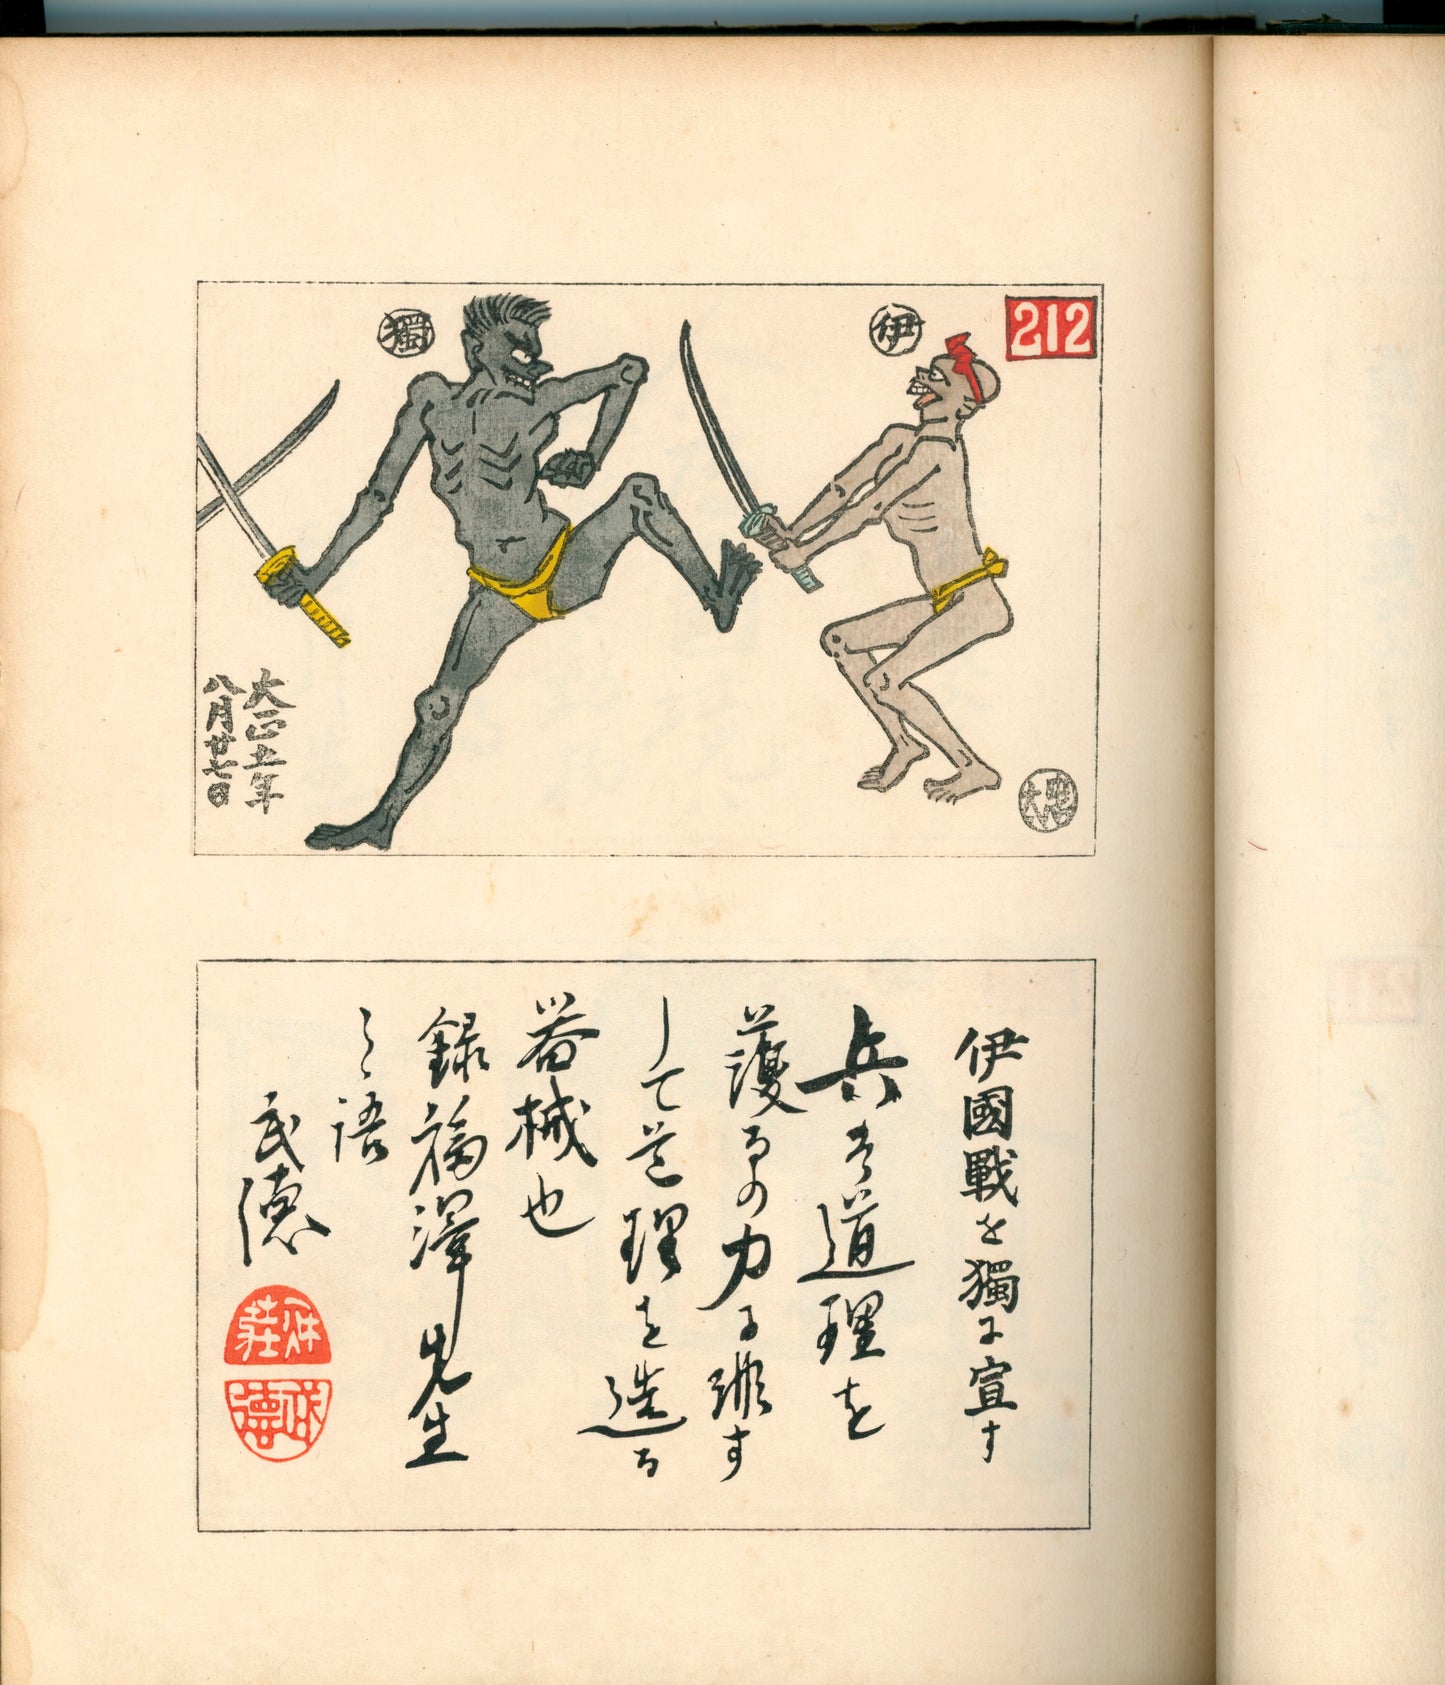 212
伊
獨
大正五年
八月廿七日
伊國戰を獨に宣す
兵は道理を
護るの力に非ず
して理を造る
器械也
録福澤先生
之語
徳